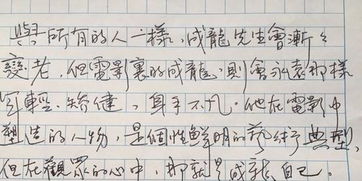 與所有的人一樣，成龍先生會漸漸
變老，但電影裏的成龍，則會永遠那樣
年輕、矯健，身手不凡。他在電影中
塑造的人物，是個性鮮明的藝術典型，
但在觀眾的心中，那就是成龍自己。